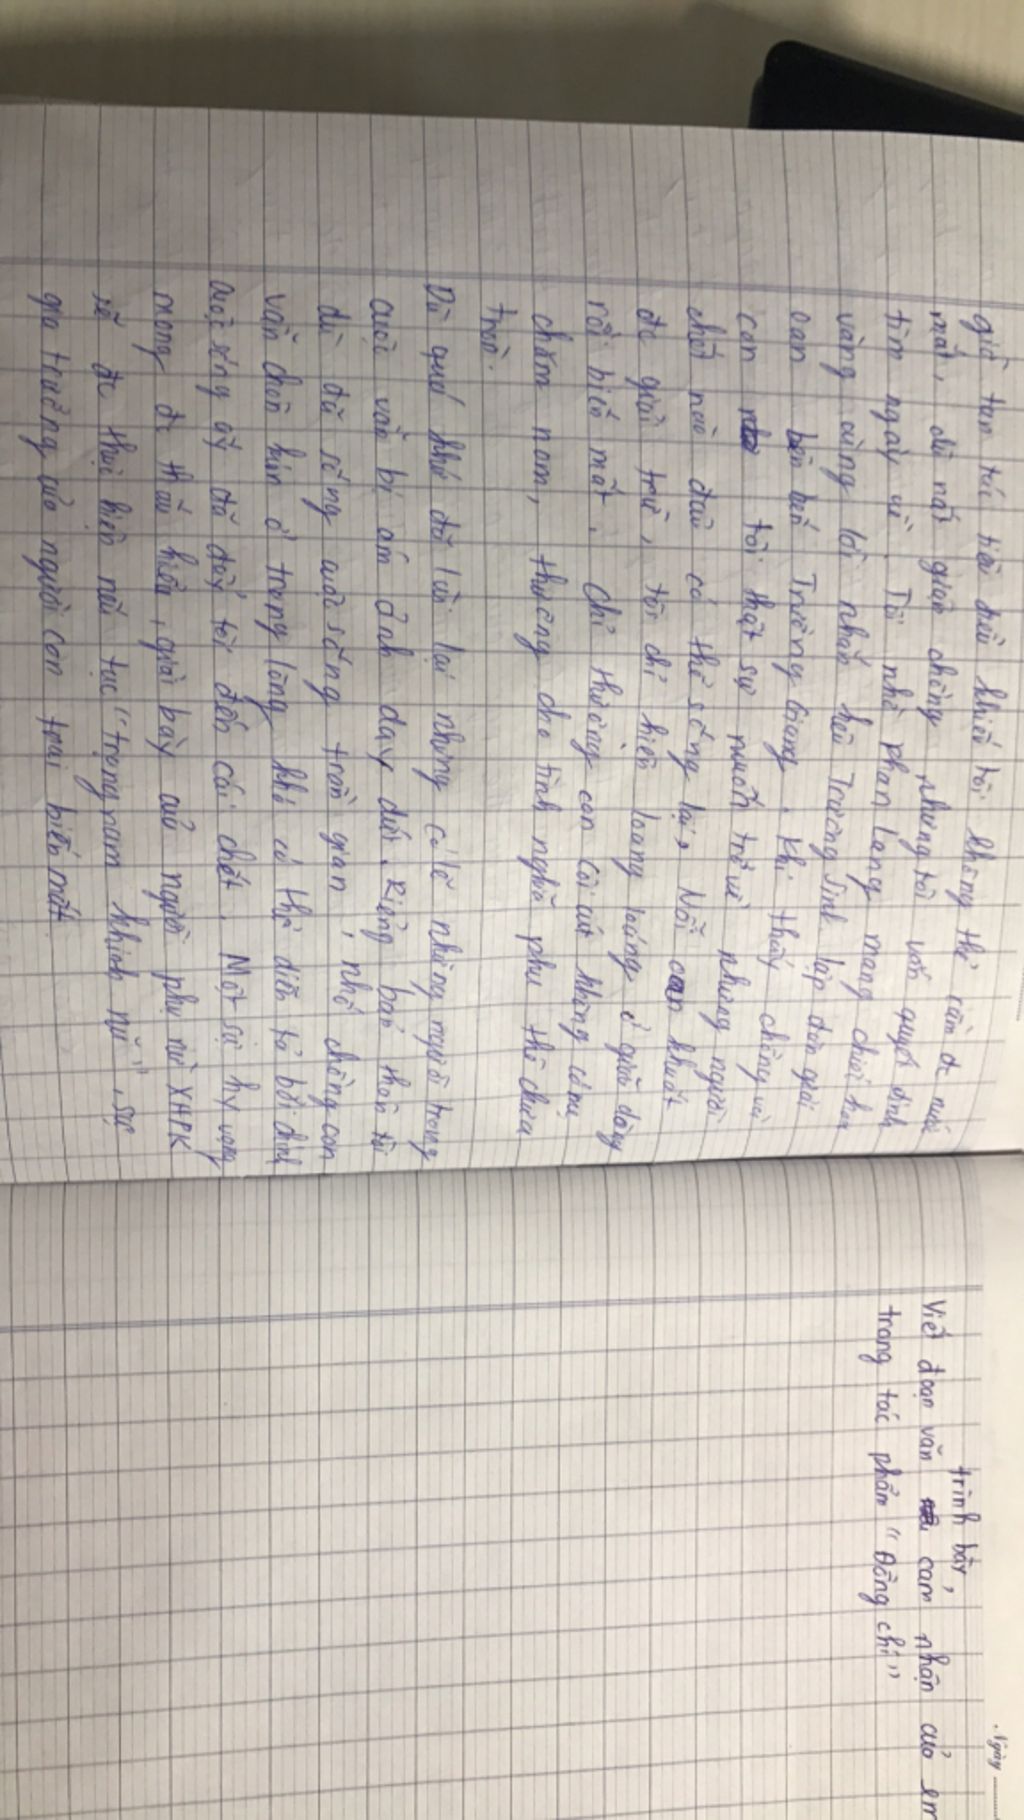 giá tan tóc tiêu điều khiến tôi không thể cầm đc nước
mắt, dù nát giận chồng nhưng tôi vẫn quyết định
tìm ngày về. Tôi nhờ phan Lang mang chiếc hoa
vàng cùng lời nhắn kêu Trương Sinh lập đàn giải
oan bên bến Trường Giang. Khi thấy chồng và
con tôi thật sự muốn trở về nhưng người
chết nào đâu có thể sống lại, Nỗi oan khuất
đc giải trừ, tôi chỉ hiện loang loáng ở giữa dòng
rồi biến mất. Chỉ thương con côi cút không có mẹ
chăm nom, thương cho tình nghĩa phu thê chưa
tròn.
Dù quá khứ đã lùi lại nhưng có lẽ những người trong
cuộc vẫn bị ám ảnh day dứt. Riêng bản thân tôi
dù đã sống cuộc sống trần gian, nhớ chồng con
vẫn chôn kín ở trong lòng khó có thể diễn tả bởi chính
cuộc sống ấy đã đẩy tôi đến cái chết. Một sự hy vọng
mong đc thấu hiểu, giãi bày của người phụ nữ XHPK
sẽ đc thực hiện nếu tục "trọng nam khinh nữ", sự
gia trưởng của người con trai biến mất.
Ngày
trình bày,
Viết đoạn văn cảm nhận của em
trong tác phẩm "Đồng chí"